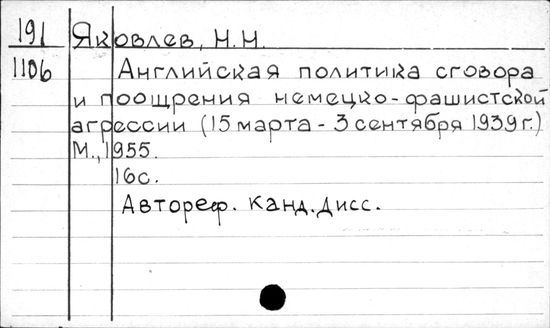 191 Яковлев, Н.Н.
1106 Английская политика сговора
и поощрения немецко-фашистской
агрессии (15 марта - 3 сентября 1939г.)
М., 1955.
16с.
Автореф. Канд. дисс.